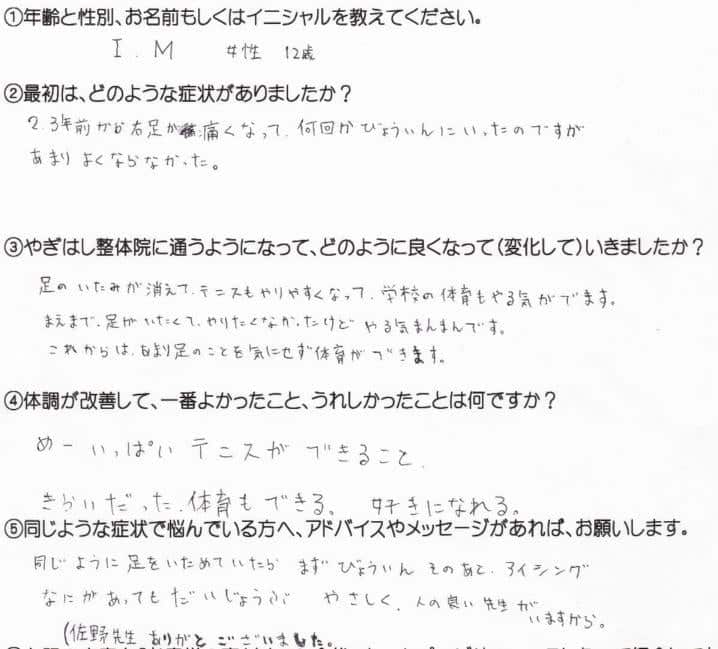 ①年齢と性別、お名前もしくはイニシャルを教えてください。
I.M 女性 12歳
②最初は、どのような症状がありましたか？
2.3年前から右足が痛くなって、何回かびょういんにいったのですが
あまりよくならなかった。
③やぎはし整体院に通うようになって、どのように良くなって（変化して）いきましたか？
足のいたみが消えて、テニスもやりやすくなって、学校の体育もやる気がでます。
まえまで、足がいたくて、やりたくなかったけどやる気まんまんです。
これからは、あまり足のことを気にせず体育ができます。
④体調が改善して、一番よかったこと、うれしかったことは何ですか？
めーいっぱいテニスができること、
きらいだった、体育もできる。 好きになれる。
⑤同じような症状で悩んでいる方へ、アドバイスやメッセージがあれば、お願いします。
同じように足をいためていたら まず びょういん そのあと、アイシング
なにがあっても だいじょうぶ やさしく、人の良い先生が
いますから。
(佐野先生 ありがとございました。